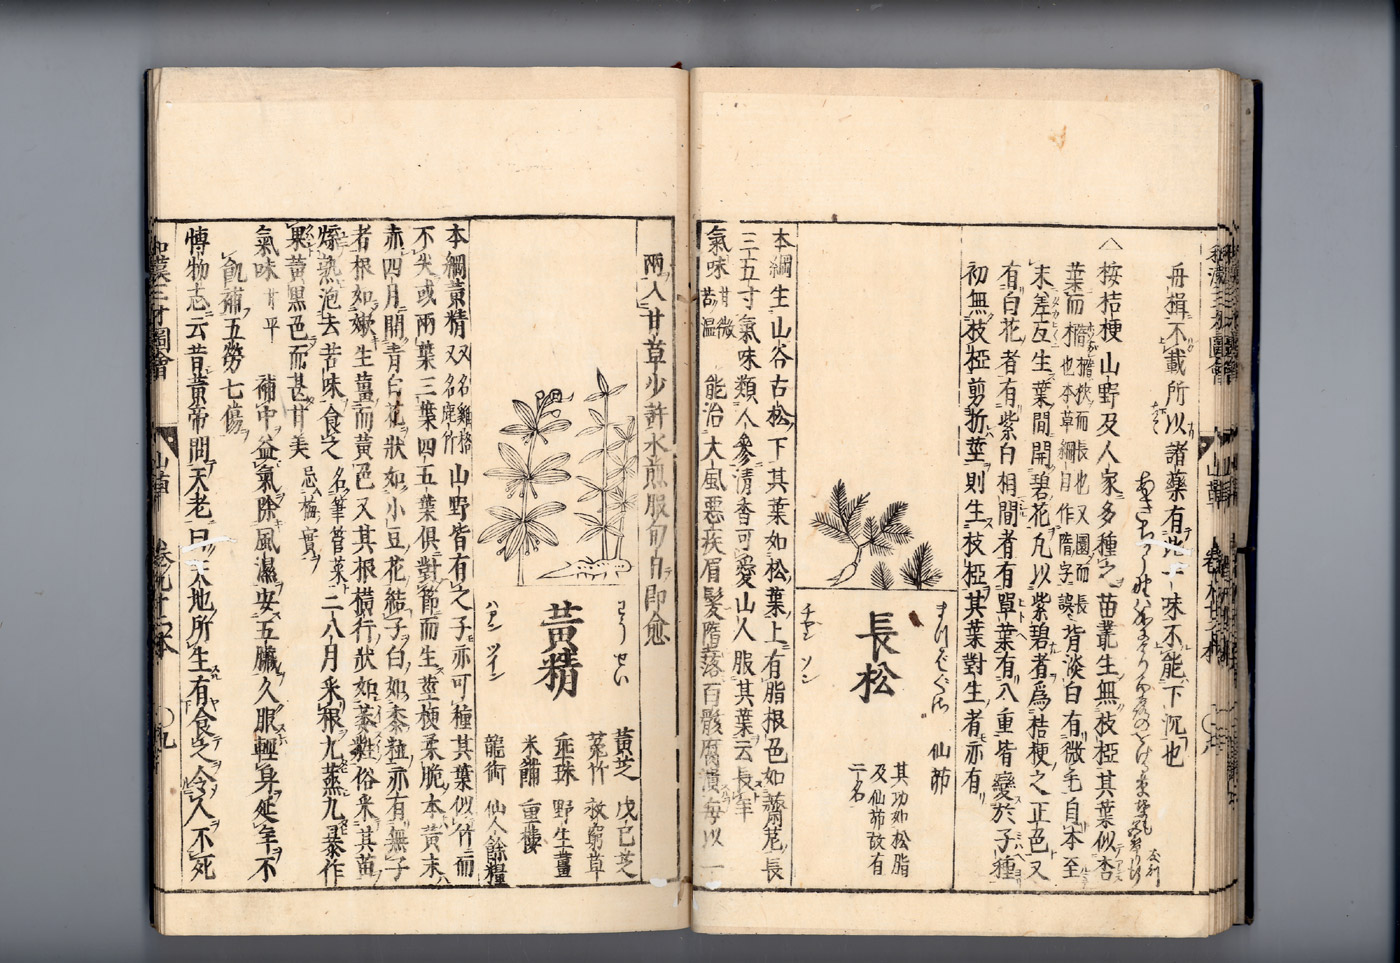 舟揖不載所以諸藥有此一味不能下沉也
△桉桔梗山野及人家多種之苗叢生無枝椏其葉似杏
葉而楕
楕狹而長也又圜而長
也本草綱目作隋字誤
背淡白有微毛自本至
末差互生葉間開碧花凡以紫碧者爲桔梗之正色又
有白花者有紫白相間者有單葉有八重皆變於子種
初無枝椏剪折莖則生枝椏其葉對生者亦有
長松
チヤン ソン
仙茆
其功如松脂
及仙茆故有
二名
本綱生山谷古松下其葉如松葉上有脂根色如薺苨長
三五寸氣味類人參清香可愛山人服其葉云長年
氣味
甘微
苦温
能治大風惡疾眉髮墮落百骸腐潰每以一
兩入甘草少許水煎服旬日即愈
黃精
わう せい
ハアン ツイン
黃芝 戊己芝
菟竹 救窮草
垂珠 野生薑
米餔 重樓
龍銜 仙人餘糧
本綱黃精
又名雞格
又名鹿竹
山野皆有之子亦可種其葉似竹而
不尖或兩葉三葉四五葉俱對節而生莖梗柔脆本黃末
赤四月開青白花狀如小豆花結子白如黍粒亦有無子
者根如嫩生薑而黃色又其根橫行狀如萎蕤俗采其苗
煠熟泡去苦味食之
名筆管菜
二八月采根九蒸九暴作
果黃黑色而甚甘美
忌梅實
氣味
甘平
補中益氣除風濕安五臟久服輕身延年不
飢補五勞七傷
博物志云昔黃帝問天老曰天地所生有食之令人不死
和漢三才圖會
山草